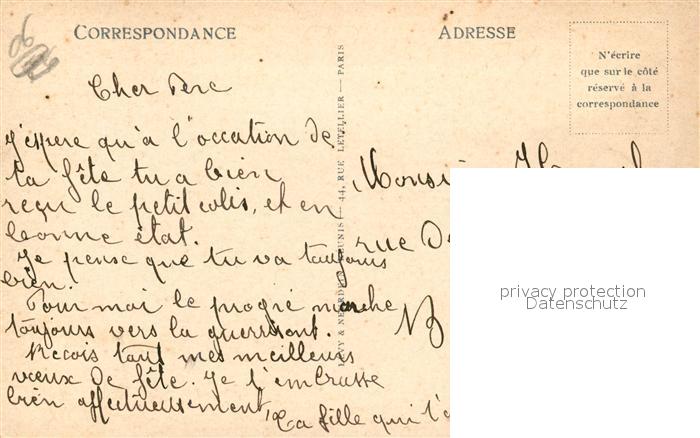 CORRESPONDANCE
Cher Père
J'éspere qu'a l'occation de
ta fête tu a bien
reçu le petit colis, et en
bonne état.
Je pense que tu va toujours
bien.
Pour moi le progré marche
toujours vers la guerisont.
Recois tout mes meilleurs
vœux de fête. Je t'embrasse
bien affectueusement
Ta fille qui t'
LEVY & NEURDEIN REUNIS — 44, RUE LETELLIER — PARIS
ADRESSE
N'écrire
que sur le côté
réservé à la
correspondance
Monsi
rue De
privacy protection
Datenschutz